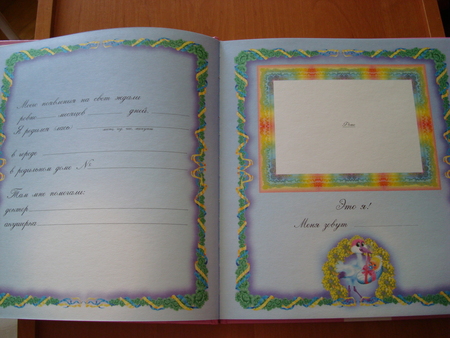 Моего появления на свет ждали
ровно месяцев дней.
Я родился
в городе
в родильном доме №
Там мне помогали:
доктор
акушерка
Фото
Это я!
Меня зовут